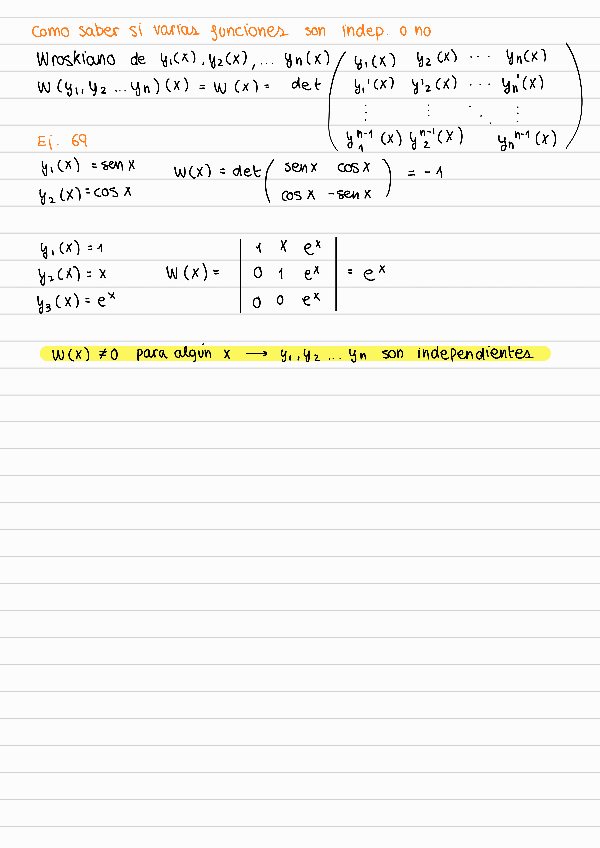 Como saber si varias funciones son indep. o no
Wroskiano de y₁(x), y₂(x), ... yn(x) ( y₁(x) y₂(x) ... yn(x)
W(y₁, y₂ ... yn)(x) = W(x) = det y₁'(x) y'₂(x) ... yn'(x)
⋮ ⋮ ⋱ ⋮
y₁ⁿ⁻¹(x) y₂ⁿ⁻¹(x) ynⁿ⁻¹(x) )
Ej. 69
y₁(x) = sen x
y₂(x) = cos x
W(x) = det ( sen x cos x
cos x - sen x ) = -1
y₁(x) = 1
y₂(x) = x
y₃(x) = eˣ
W(x) = | 1 x eˣ |
| 0 1 eˣ | = eˣ
| 0 0 eˣ |
W(x) ≠ 0 para algún x → y₁, y₂ ... yn son independientes